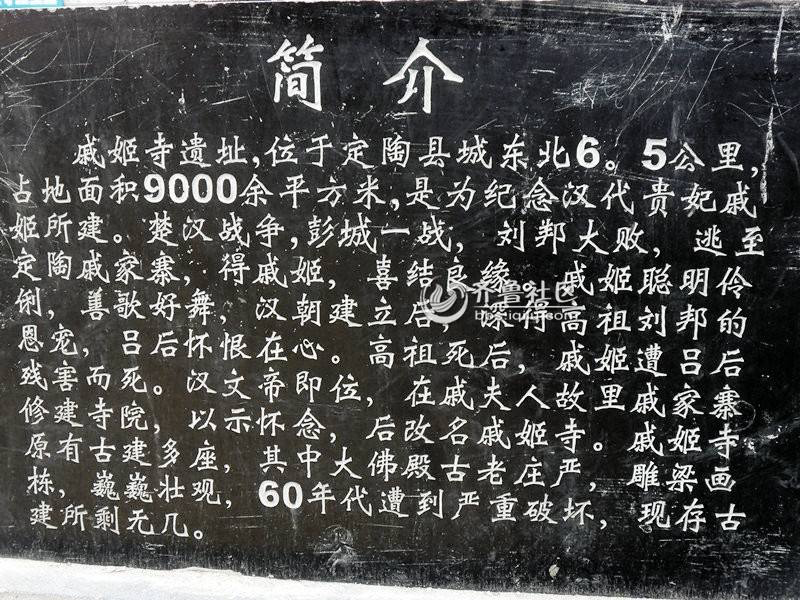 简介
戚姬寺遗址,位于定陶县城东北6。5公里,
占地面积9000余平方米,是为纪念汉代贵妃戚
姬所建。楚汉战争,彭城一战,刘邦大败,逃至
定陶戚家寨,得戚姬,喜结良缘。戚姬聪明伶
俐,善歌好舞,汉朝建立后,深得高祖刘邦的
恩宠,吕后怀恨在心。高祖死后,戚姬遭吕后
残害而死。汉文帝即位,在戚夫人故里戚家寨
修建寺院,以示怀念,后改名戚姬寺。戚姬寺
原有古建多座,其中大佛殿古老庄严,雕梁画
栋,巍巍壮观,60年代遭到严重破坏,现存古
建所剩无几。
齐鲁社区